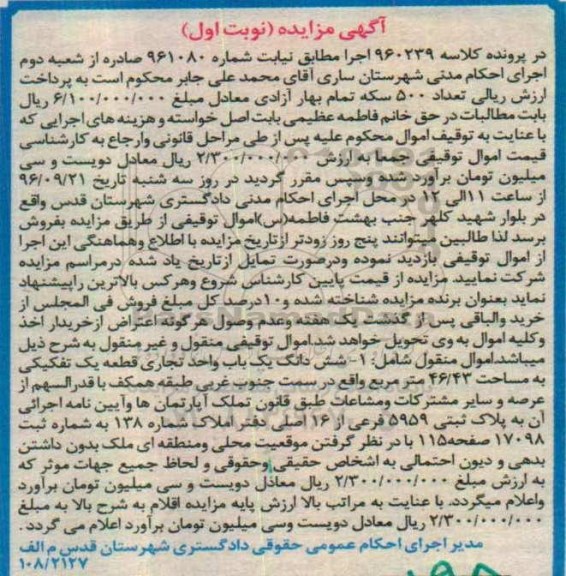 آگهی مزایده (نوبت اول)
در پرونده کلاسه ۹۶۰۲۳۹ اجرا مطابق نیابت شماره ۹۶۱۰۸۰ صادره از شعبه دوم
اجرای احکام مدنی شهرستان ساری آقای محمد علی جابر محکوم است به پرداخت
ارزش ریالی تعداد ۵۰۰ سکه تمام بهار آزادی معادل مبلغ ۶/۱۰۰/۰۰۰/۰۰۰ ریال
بابت مطالبات در حق خانم فاطمه عظیمی بابت اصل خواسته و هزینه های اجرایی که
با عنایت به توقیف اموال محکوم علیه پس از طی مراحل قانونی وارجاع به کارشناسی
قیمت اموال توقیفی جمعا به ارزش ۲/۳۰۰/۰۰۰/۰۰۰ ریال معادل دویست و سی
میلیون تومان برآورد شده و سپس مقرر گردید در روز سه شنبه تاریخ ۹۶/۰۹/۲۱
از ساعت ۱۱الی ۱۲ در محل اجرای احکام مدنی دادگستری شهرستان قدس واقع
در بلوار شهید کلهر جنب بهشت فاطمه(س)اموال توقیفی از طریق مزایده بفروش
برسد لذا طالبین میتوانند پنج روز زودتر ازتاریخ مزایده با اطلاع وهماهنگی این اجرا
از اموال توقیفی بازدید نموده ودرصورت تمایل ازتاریخ یاد شده درمراسم مزایده
شرکت نمایید مزایده از قیمت پایین کارشناس شروع وهرکس بالاترین راپیشنهاد
نماید بعنوان برنده مزایده شناخته شده و۱۰درصد کل مبلغ فروش فی المجلس از
خرید والباقی پس از گذشت یک هفته وعدم وصول هر گونه اعتراض ازخریدار اخذ
وکلیه اموال به وی تحویل خواهد شد.اموال توقیفی منقول و غیر منقول به شرح ذیل
میباشد.اموال منقول شامل: ۱- شش دانگ یک باب واحد تجاری قطعه یک تفکیکی
به مساحت ۴۶/۴۳ متر مربع واقع در سمت جنوب غربی طبقه همکف با قدرالسهم از
عرصه و سایر مشترکات ومشاعات طبق قانون تملک آپارتمان ها وآیین نامه اجرائی
آن به پلاک ثبتی ۵۹۵۹ فرعی از ۱۶ اصلی دفتر املاک شماره ۱۳۸ به شماره ثبت
۱۷۰۹۸ صفحه۱۱۵ با در نظر گرفتن موقعیت محلی ومنطقه ای ملک بدون داشتن
بدهی و دیون احتمالی به اشخاص حقیقی وحقوقی و لحاظ جمیع جهات موثر که
به ارزش مبلغ ۲/۳۰۰/۰۰۰/۰۰۰ ریال معادل دویست و سی میلیون تومان برآورد
واعلام میگردد. با عنایت به مراتب بالا ارزش پایه مزایده اقلام به شرح بالا به مبلغ
۲/۳۰۰/۰۰۰/۰۰۰ ریال معادل دویست وسی میلیون تومان برآورد اعلام می گردد .
مدیر اجرای احکام عمومی حقوقی دادگستری شهرستان قدس م الف
۱۰۸/۲۱۲۷